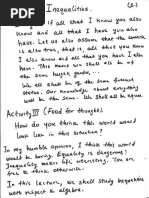 Inequalities.
(2-1)
if all that I know you also
know and all that I have you also
have. Let us also assume that the converse
is also true, that is, all that you know
I also know and all that you have I also
have. This means we shall all be of
the same height, ...
We shall all be of the same financial
status. Our knowledge about everything
will be the same. We shall all be equal.
Activity III (Food for thought).
How do you think this world would
look like in this situation?
In my humble opinion, I think this world
would be boring. Equality is dangerous!
Inequality makes life interesting. You are
free to think otherwise.
In this lecture, we shall study inequalities
with respect to algebra.